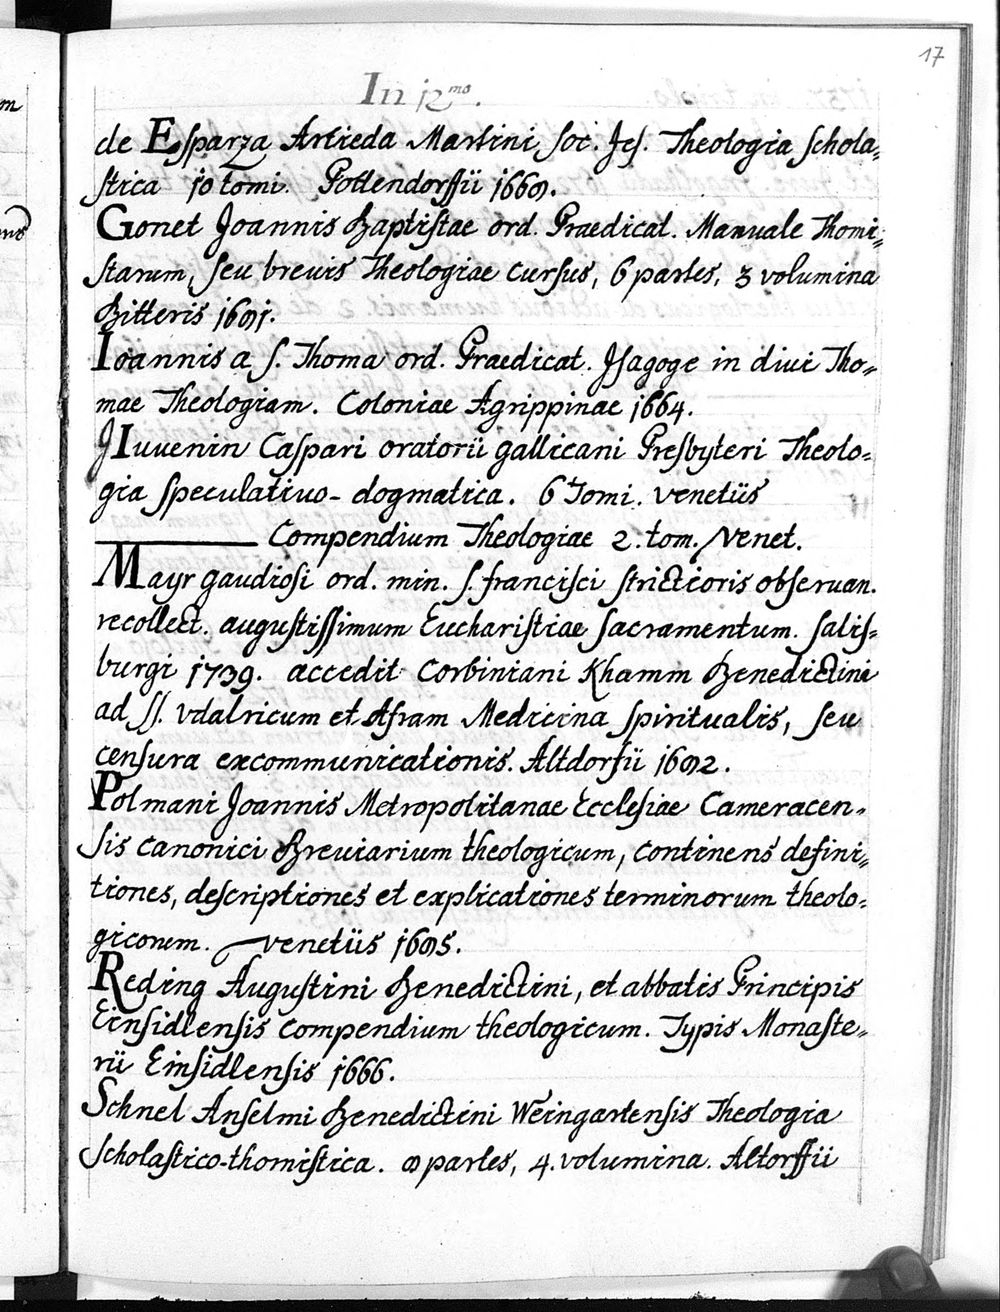 17
In 12mo.
de Esparza Artieda Martini, Soc. Jes. Theologia schola=
stica 10 tomi. Pottendorffii 1668.
Gonet Joannis Baptistae ord. Praedicat. Manuale Thomi=
starum, seu brevis Theologiae cursus, 6 partes, 3 volumina
Bitteris 1681.
Ioannis a S. Thoma ord. Praedicat. Isagoge in divi Tho=
mae Theologiam. Coloniae Agrippinae 1664.
Iuuenin Caspari oratorii gallicani Presbyteri Theolo=
gia speculativo-dogmatica. 6 Tomi. Venetiis
——— Compendium Theologiae 2. tom. Venet.
Mayr gaudiosi ord. min. S. francisci strictioris obseruan.
recollect. augustissimum Eucharistiae sacramentum. salis=
burgi 1739. accedit Corbiniani Khamm Benedictini
ad SS. Vdalricum et Afram Medicina spiritualis, seu
censura excommunicationis. Altdorfii 1682.
Polmani Joannis Metropolitanae Ecclesiae Cameracen=
sis canonici Breviarium theologicum, continens defini=
tiones, descriptiones et explicationes terminorum theolo=
gicorum. Venetiis 1685.
Reding Augustini Benedictini, et abbatis Principis
Einsidlensis compendium theologicum. Typis Monaste=
rii Einsidlensis 1666.
Schnel Anselmi Benedictini Weingartensis Theologia
scholastico-thomistica. 8 partes, 4. volumina. Altorffii